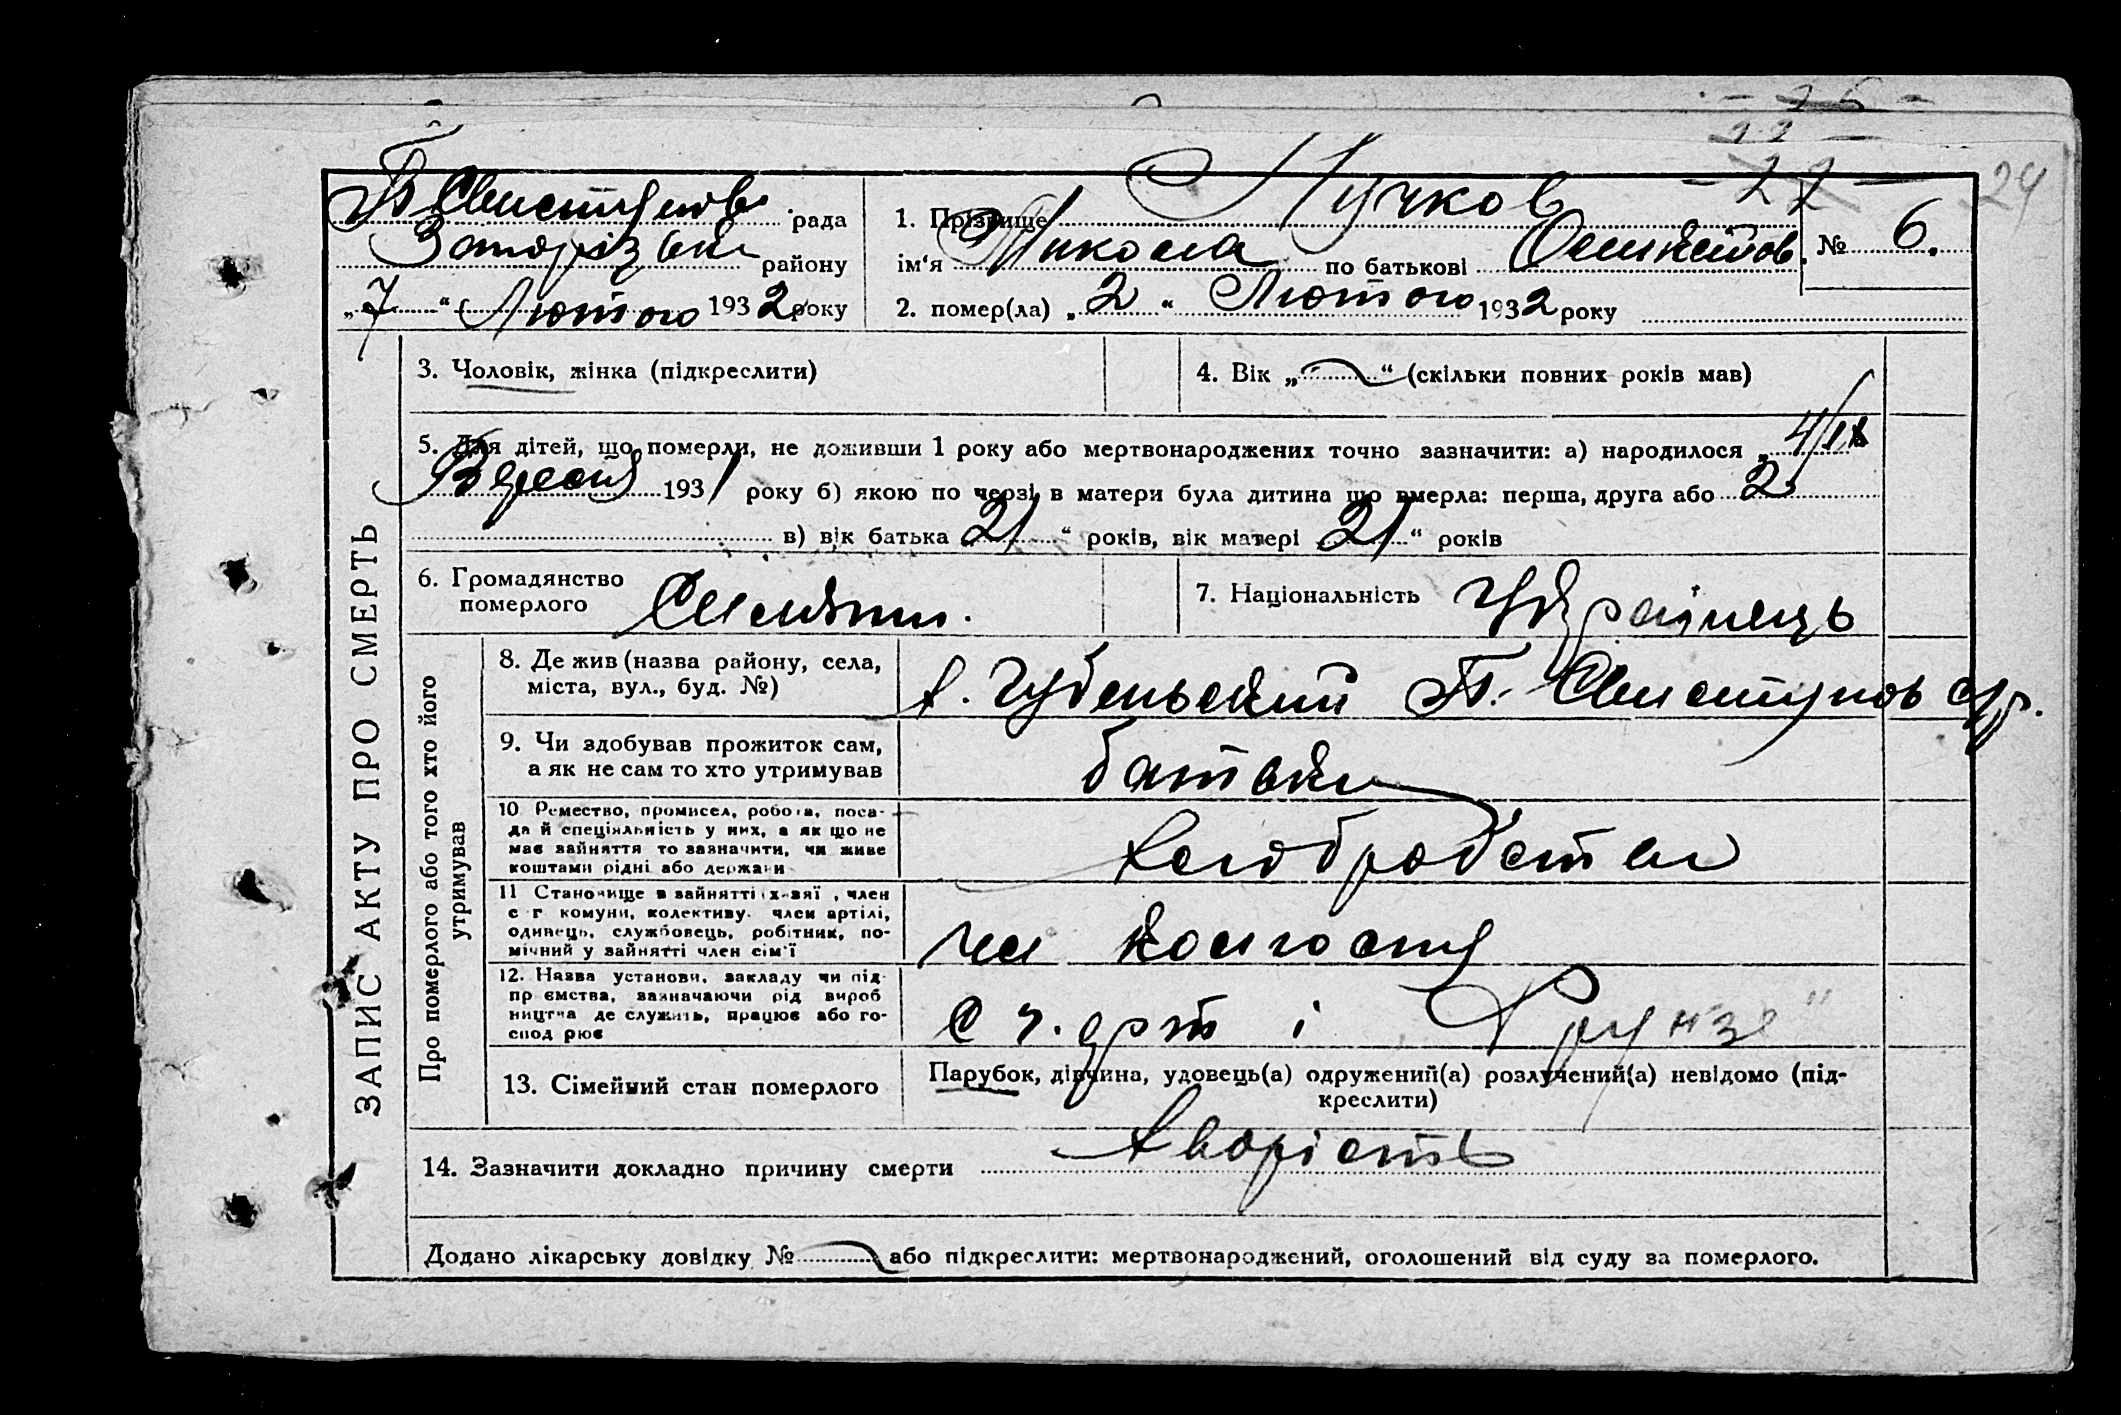 24
22
Т. Свистунов. рада
Запорізьк району
„7“ Лютого 1932 року
1. Прізвище Пучков
№ 6.
ім‘я Микола по батькові
2. помер(ла) „2“ Лютого 1932 року
ЗАПИС АКТУ ПРО СМЕРТЬ
3. Чоловік, жінка (підкреслити)
4. Вік „ “ (скільки повних років мав)
5. Для дітей, що померли, не доживши 1 року або мертвонароджених точно зазначити: а) народилося „4/IX
Вересня 1931 року б) якою по черзі в матери була дитина що вмерла: перша, друга або 2.
в) вік батька 21“ років, вік матері 21“ років
6. Громадянство
померлого
7. Національність Українець
Про померлого або того хто його
утримував
8. Де жив (назва району, села,
міста, вул., буд. №)
Т. Свистунов с/р.
9. Чи здобував прожиток сам,
а як не сам то хто утримував
батьки
10 Ремество, промисел, робота, поса-
да й спеціяльність у них, а як що не
має зайняття то зазначити, чи живе
коштами рідні або держави
хліборобство
11 Становище в зайнятті (х-зяї , член
с г комуни, колективу. член артілі,
одинець, службовець, робітник, по-
мічний у зайнятті член сім‘ї
чл колгоспу
12. Назва установи, закладу чи під-
пр ємства, зазначаючи рід вироб
ництва де служить, працює або го-
спод рює
с г. арт і Фрунзе"
13. Сімейний стан померлого
Парубок, дівчина, удовець(а) одружений(а) розлучений(а) невідомо (під-
креслити)
14. Зазначити докладно причину смерти хворість
Додано лікарську довідку № або підкреслити: мертвонароджений, оголошений від суду за померлого.